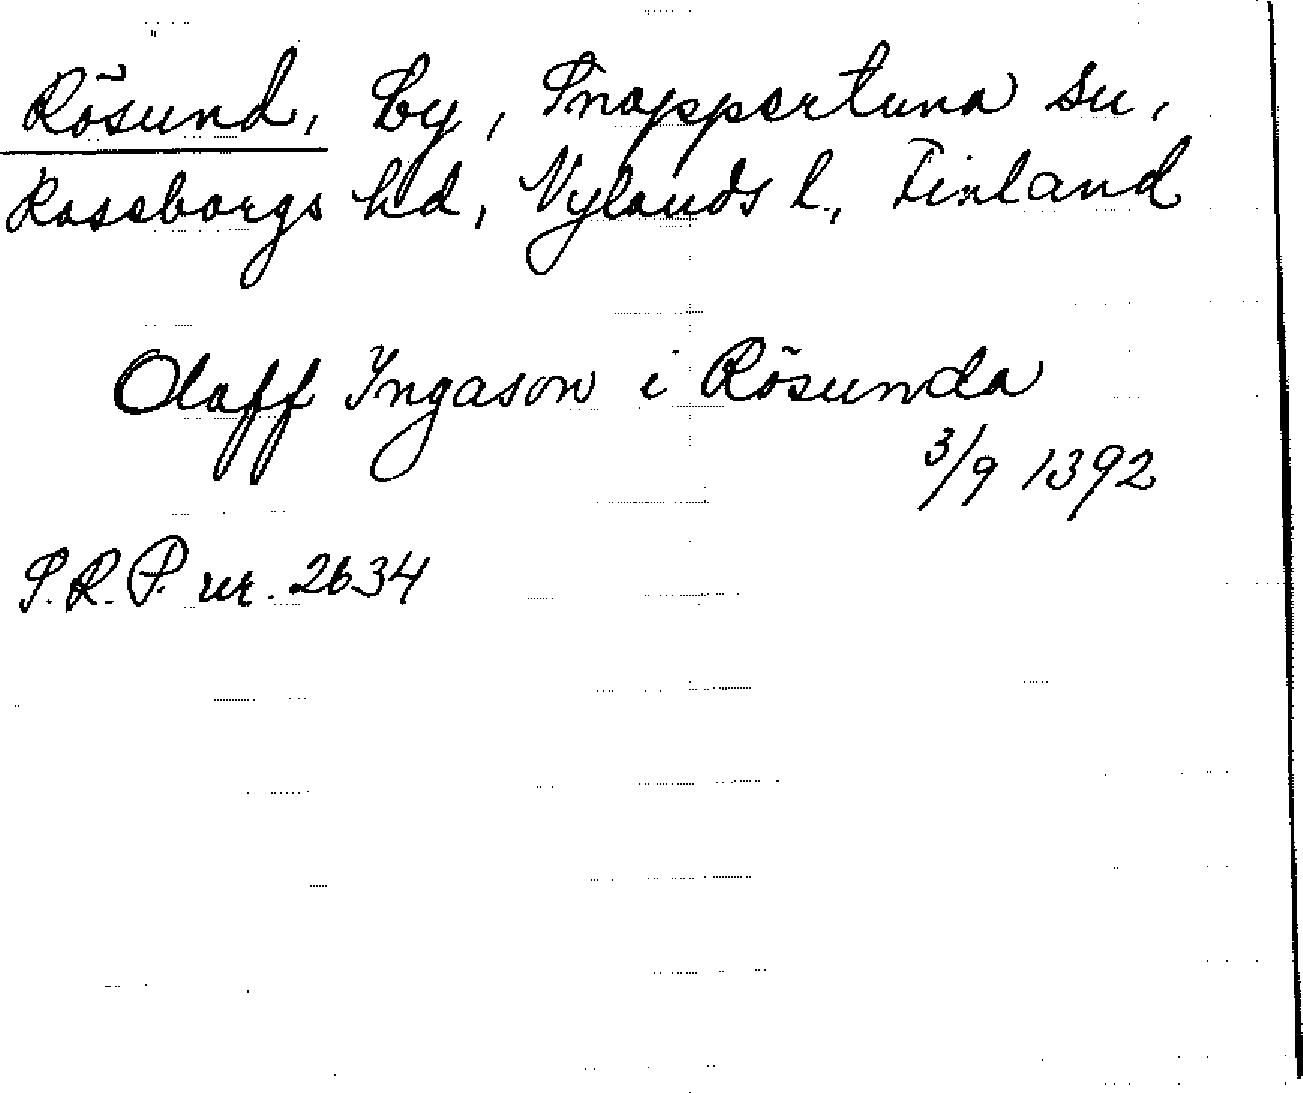 Rösund, by, Snappertuna sn,
Raseborgs hd, Nylands l., Finland
Olaff Ingason i Rösunda
3/9 1392
S.R.P. nr. 2634